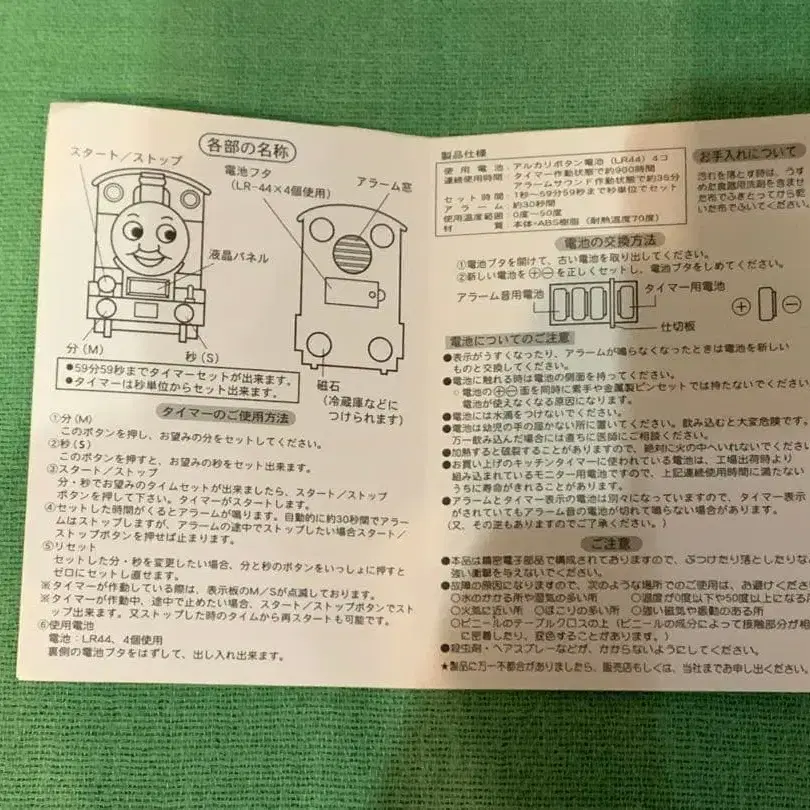 各部の名称
スタート／ストップ
電池フタ
(LR-44×4個使用)
アラーム窓
液晶パネル
分(M)
秒(S)
磁石
(冷蔵庫などに
つけられます)
●59分59秒までタイマーセットが出来ます。
●タイマーは秒単位からセット出来ます。
タイマーのご使用方法
①分(M)
このボタンを押し、お望みの分をセットしてください。
②秒(S)
このボタンを押すと、お望みの秒をセット出来ます。
③スタート／ストップ
分・秒でお望みのタイムセットが出来ましたら、スタート／ストップ
ボタンを押して下さい。タイマーがスタートします。
④セットした時間がくるとアラームが鳴ります。自動的に約30秒間でアラー
ムはストップしますが、アラームの途中でストップしたい場合スタート／
ストップボタンを押せば止まります。
⑤リセット
セットした分・秒を変更したい場合、分と秒のボタンをいっしょに押すと
ゼロにセットし直せます。
※タイマーが作動している際は、表示板のM／Sが点滅しております。
※タイマーが作動中、途中で止めたい場合、スタート／ストップボタンでスト
ップ出来ます。又ストップした時のタイムから再スタートも可能です。
⑥使用電池
電池：LR44、4個使用
裏側の電池ブタをはずして、出し入れ出来ます。
製品仕様
使用電池：アルカリボタン電池（LR44）4コ
連続使用時間：タイマー作動状態で約900時間
アラームサウンド作動状態で約35分
セット時間：1秒〜59分59秒まで秒単位でセット
アラーム：約30秒間
使用温度範囲：0度〜50度
材質：本体-ABS樹脂（耐熱温度70度）
お手入れについて
汚れを落とす時は、うす
めた食器用洗剤を含ませ
た布でふきとってから乾
いた布でふいてください。
電池の交換方法
①電池ブタを開けて、古い電池を取り出してください。
②新しい電池を⊕⊖を正しくセットし、電池ブタをしめてください。
アラーム音用電池
タイマー用電池
仕切板
⊕ ⊖
電池についてのご注意
●表示がうすくなったり、アラームが鳴らなくなったときは電池を新しい
ものと交換してください。
●電池に触れる時は電池の側面を持ってください。
電池の⊕⊖面を同時に素手や金属製ピンセットでは持たないでくださ
電池が使えなくなる原因になります。
●電池には水滴をつけないでください。
●電池は幼児の手の届かない所に置いてください。飲み込むと大変危険です。
万一飲み込んだ場合には直ちに医師にご相談ください。
●加熱すると破裂することがありますので、絶対に火の中へいれないでくださ
●お買い上げのキッチンタイマーに使われている電池は、工場出荷時より
組み込まれているモニター用電池ですので、上記連続使用時間に満たない
うちに寿命がきれることがあります。
●アラームとタイマー表示の電池は別々になっていますので、タイマー表示
がされていてもアラーム音の電池が切れて鳴らない場合があります。
(又、その逆もありますのでご了承ください。)
ご注意
●本品は精密電子部品で構成されてありますので、ぶつけたり落としたりな
強い衝撃を与えないでください。
●故障の原因になりますので、次のような場所でのご使用は、お避けくださ
○水のかかる所や湿気の多い所 ○温度が0度以下や50度以上になる所
○火気に近い所 ○ほこりの多い所 ○強い磁気や振動のある所
○ビニールのテーブルクロスの上（ビニールの成分によって接触部分が相
に密着したり、変色することがあります。）
●殺虫剤・ヘアスプレーなどが、かからないようにしてください。
★製品に万一不都合がありましたら、販売店もしくは、当社までお申し出ください。